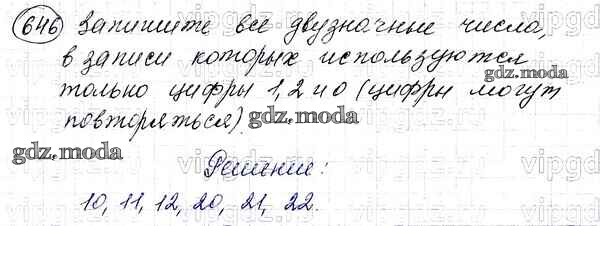 646 Запишите все двузначные числа,
в записи которых используются
gdz.moda
только цифры 1, 2 и 0 (цифры могут
повторяться). gdz.moda
gdz.moda
Решение:
10, 11, 12, 20, 21, 22.